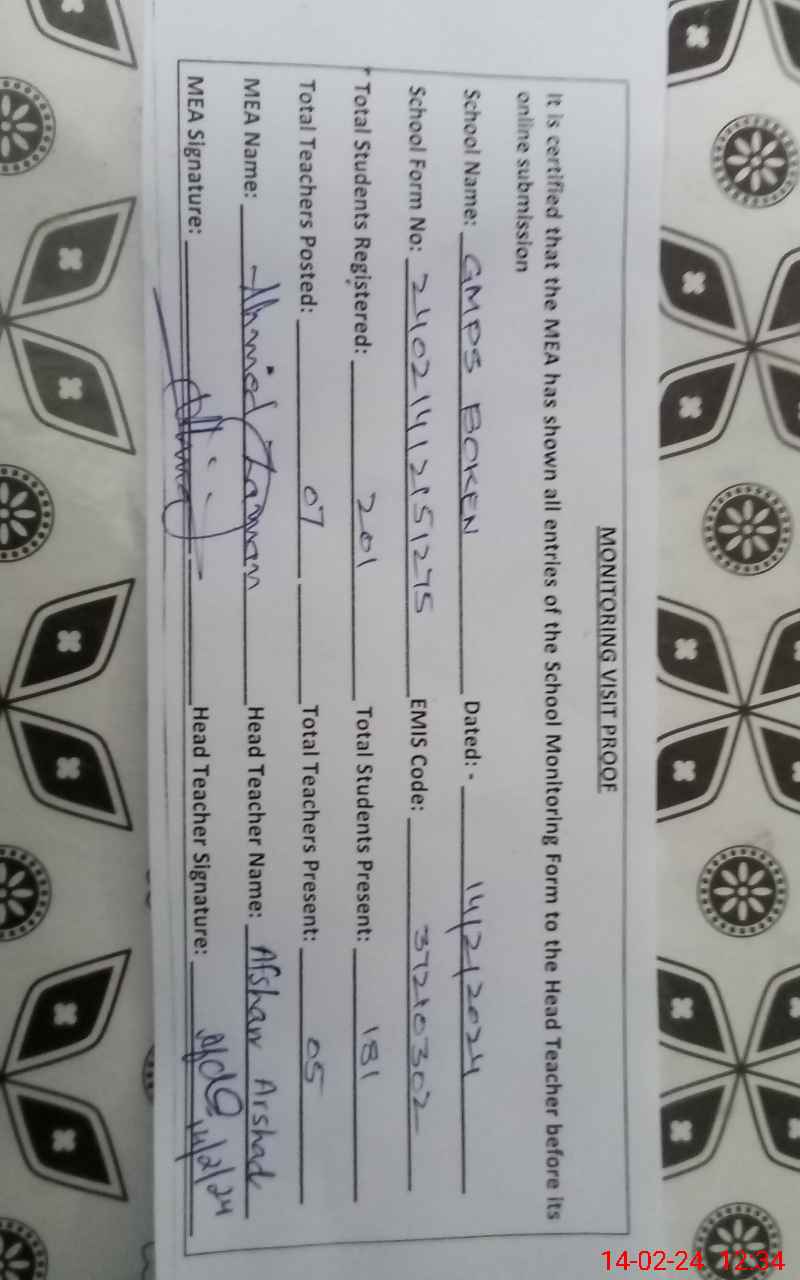 MONITORING VISIT PROOF
It is certified that the MEA has shown all entries of the School Monitoring Form to the Head Teacher before its
online submission
School Name: GMPS BOKEN Dated: - 14/2/2024
School Form No: 24021412151275 EMIS Code: 37210302
Total Students Registered: 201 Total Students Present: 181
Total Teachers Posted: 07 Total Teachers Present: 05
MEA Name: Ahmed Zaman Head Teacher Name: Afshan Arshad
MEA Signature: Head Teacher Signature: 14/2/24
14-02-24 12:34